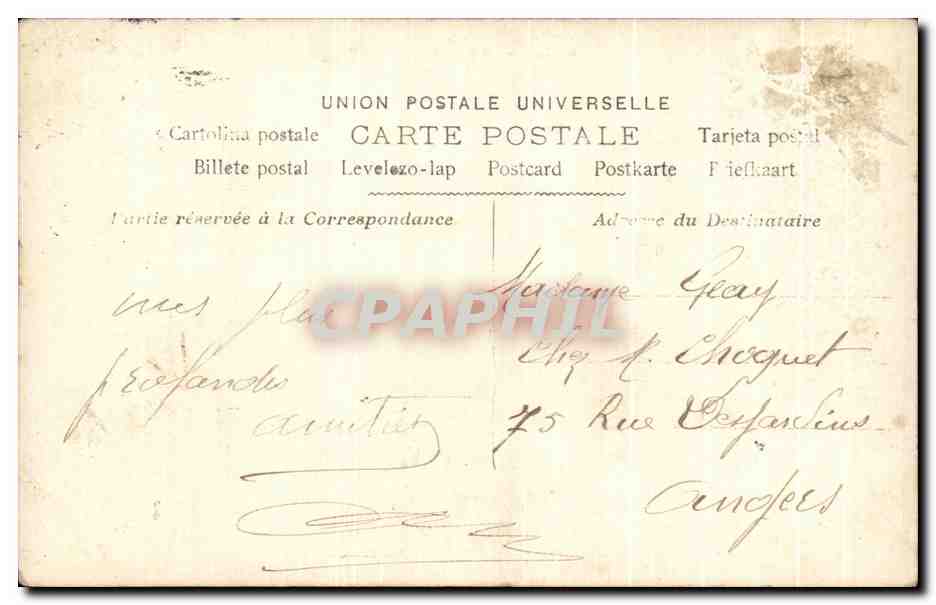 UNION POSTALE UNIVERSELLE
Cartolina postale CARTE POSTALE Tarjeta postal
Billete postal Levelezo-lap Postcard Postkarte Briefkaart
Partie réservée à la Correspondance
Adresse du Destinataire
mes plus
profondes
amitiés
Madame Geay
Chez M. Choquet
75 Rue Desjardins
Angers
CPAPHIL